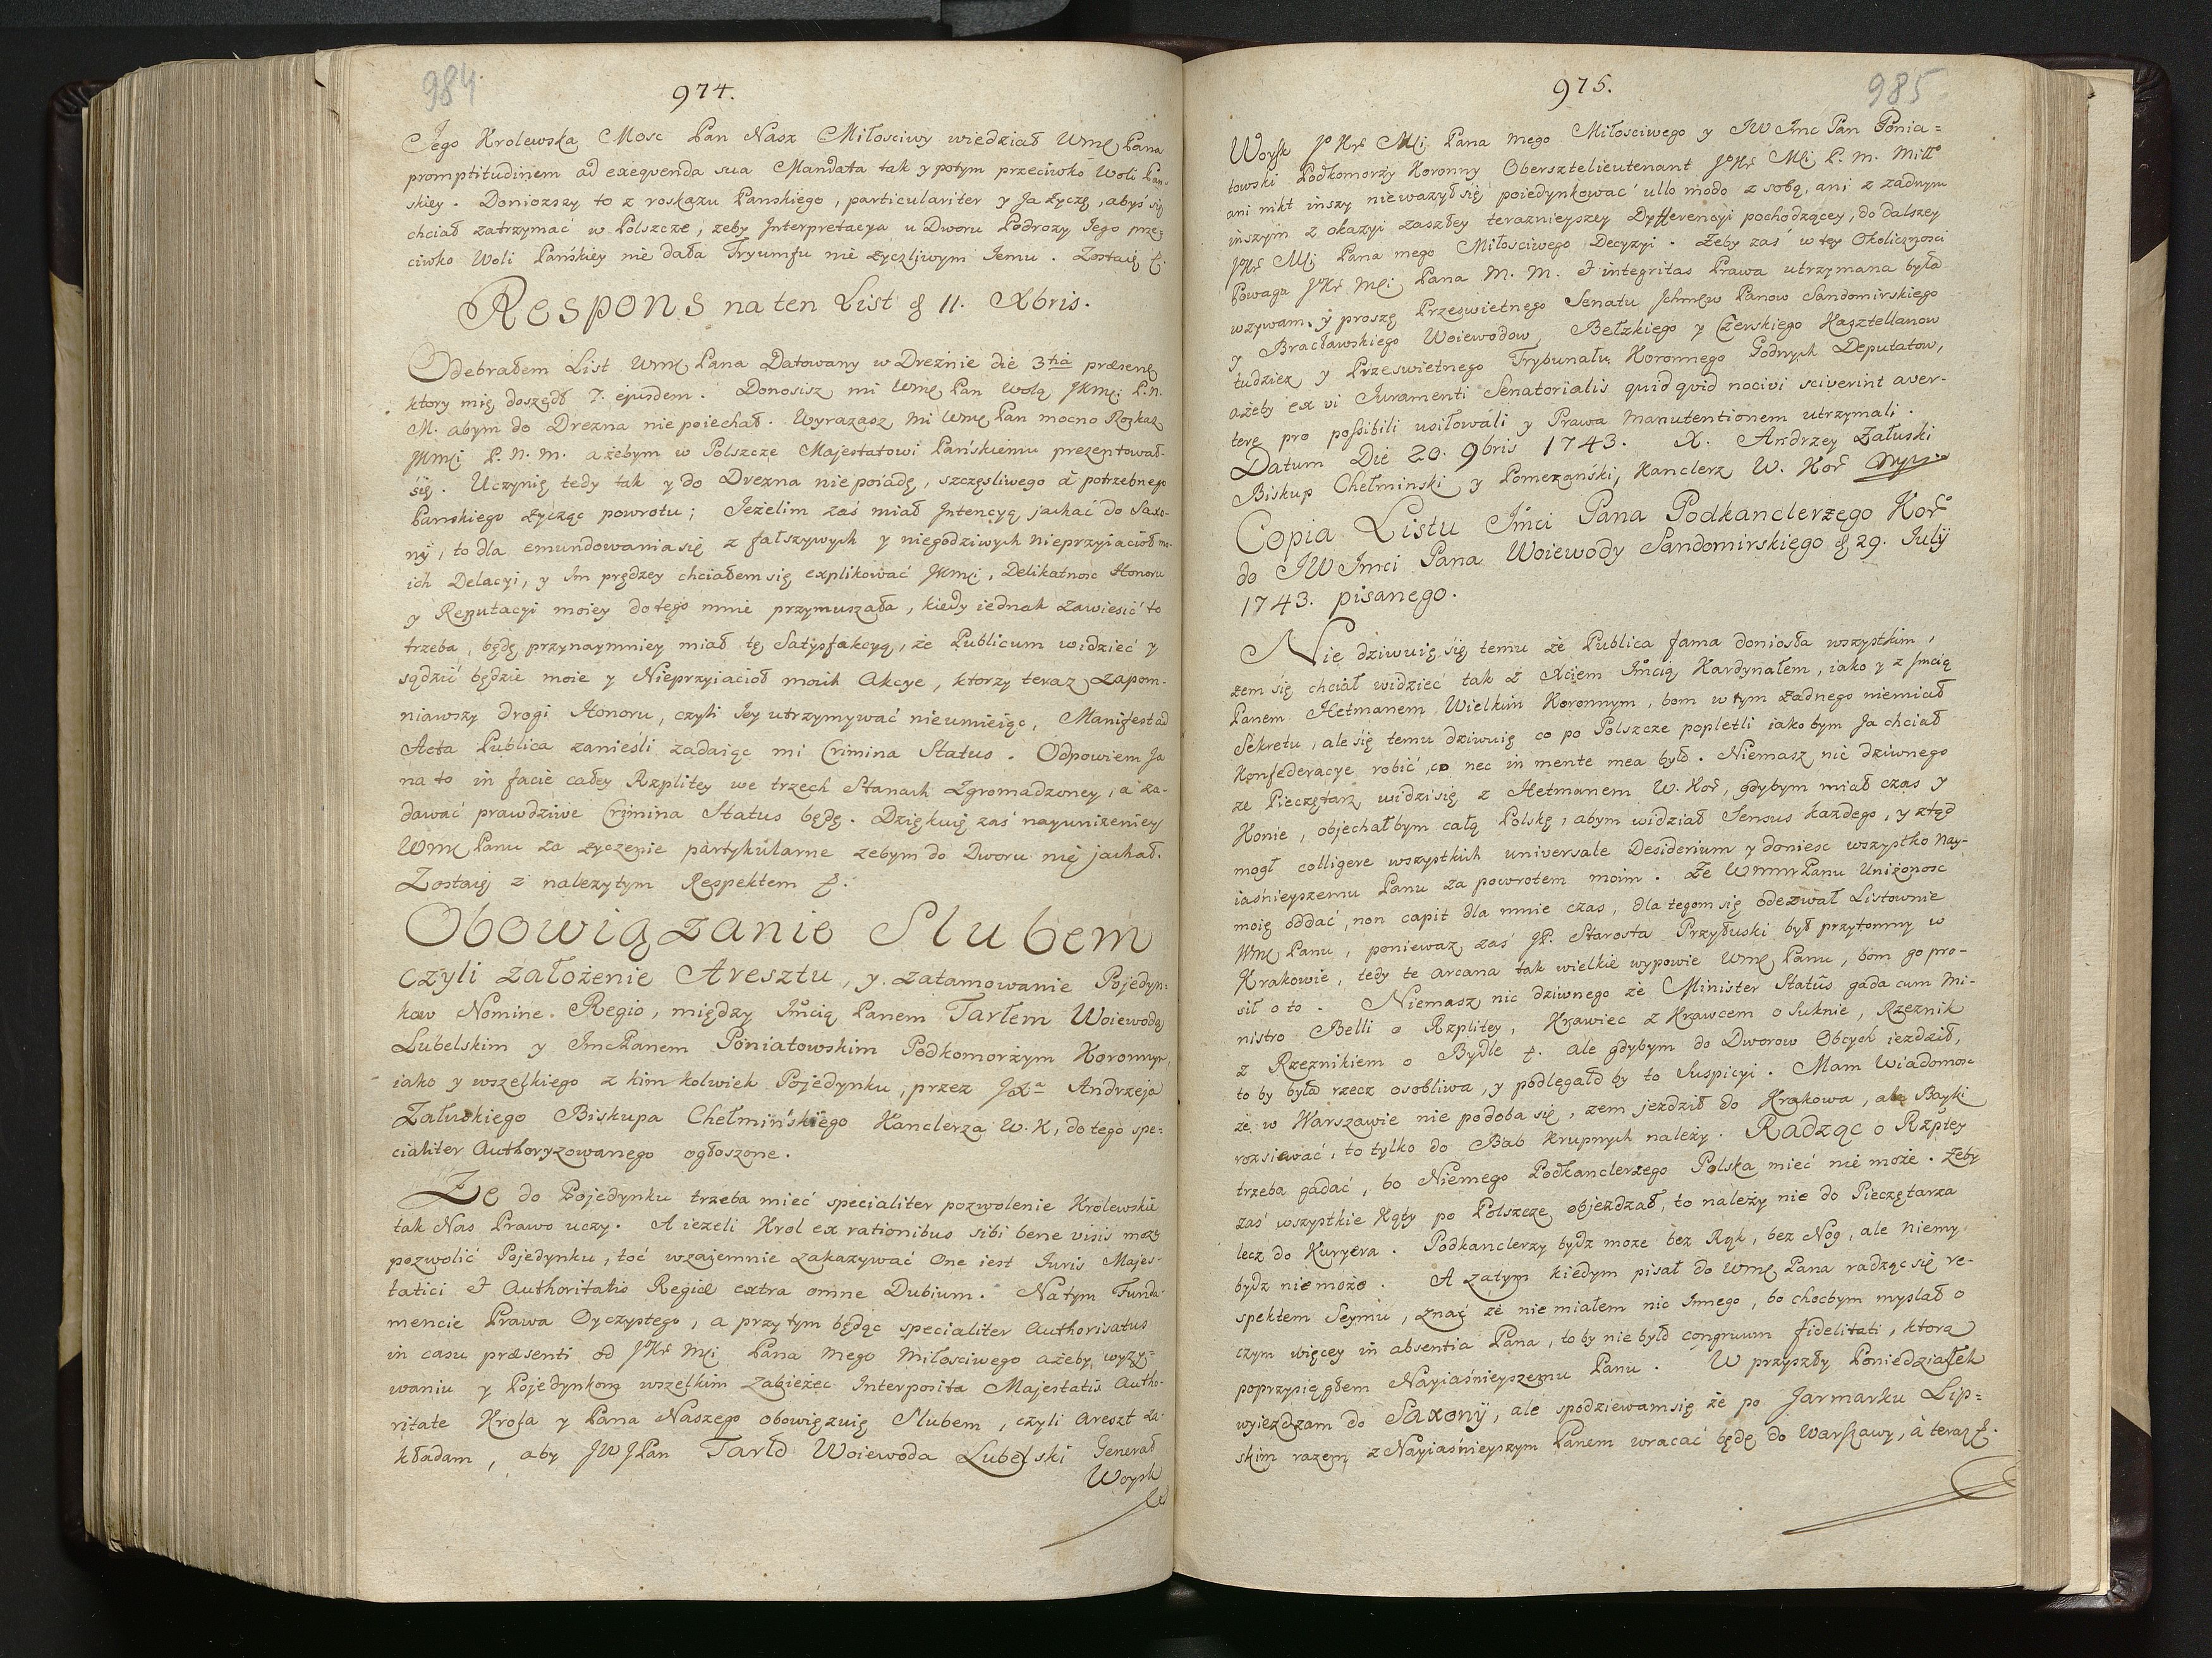 984
974.
Jego Krolewska Mosc Pan Nasz Miłosciwy wiedział Wmę Pana
promptitudinem ad exeqvenda sua Mandata tak y potym przeciwko Woli Pan-
skiey. Doniozszy to z roskazu Panskiego, particulariter y Ja życzę, abyś się
chciał zatrzymać w Polszcze, zeby Interpretacya u Dworu Podrozy Jego prze-
ciwko Woli Pańskiey nie dała Tryumfu nie życzljwym Jemu. Zostaię
Respons na ten List 11. Xbris.
Odebrałem List Wmę Pana Datowany w Dreznie die 3tia præsenę
ktory mię doszedł 7. ejusdem. Donosisz mi Wmę Pan wolą JKMci P. N.
M. abym do Drezna nie poiechał. Wyrazasz mi Wmę Pan mocno Rozkaz
JKMci P. N. M. ażebym w Polszcze Majestatowi Pańskiemu prezentował
się. Uczynię tedy tak y do Drezna nie poiadę, szczęsliwego á potrzebnego
Panskiego życząc powrotu; Jeżelim zaś miał Intencyą jachać do Saxo-
ny, to dla emundowania się z fałszywych y niegodziwych nieprzyiacioł mo-
ich Delacyi, y Im prędzey chciałem się explikować JKMci, Delikatnosc Honoru
y Reputacyi moiey do tego mnie przymuszała, kiedy iednak zawiesić to
trzeba, będę przynaymniey miał tę Satysfakcyą, że Publicum widzieć y
sądzić będzie moie y Nieprzyiacioł moich Akcye, ktorzy teraz zapom-
niawszy drogi Honoru, czyli Jey utrzymywać nie umieiąc, Manifest ad
Acta Publica zanieśli zadaiąc mi Crimina Status. Odpowiem Ja
na to in facie całey Rzplitey we trzech Stanach Zgromadzoney, a za-
dawać prawdziwe Crimina Status będę. Dziękuię zaś nayunizeniey
Wmę Panu za życzenie partykularne zebym do Dworu nie jachał.
Zostaię z nalezytym Respektem
Obowiązanie Slubem
czyli założenie Aresztu, y zatamowanie Pojedyn-
kow Nomine Regio, między Jmcią Panem Tarłem Woiewodą
Lubelskim y Jmc Panem Poniatowskim Podkomorzym Koronnym,
iako y wszelkiego z kim kolwiek Pojedynku, przez JXa Andrzeja
Załuskiego Biskupa Chełmińskiego Kanclerza W. K, do tego spe-
cialiter Authoryzowanego ogłoszone.
Ze do Pojedynku trzeba mieć specialiter pozwolenie Krolewskie
tak Nas Prawo uczy. A iezeli Krol ex rationibus sibi bene visis moze
pozwolić Pojedynku, toć wzajemnie zakazywać One iest Juris Majes-
tatici & Authoritatis Regiæ extra omne Dubium. Na tym Funda-
mencie Prawa Oyczystego, a przy tym będąc specialiter Authorisatus
in casu præsenti od JoKr Mci Pana mego Miłosciwego ażeby wyzy-
waniu y Pojedynkom wszelkim zabieżec Interposita Majestatis Autho-
ritate Krola y Pana Naszego obowięzuię Slubem, czyli Areszt za-
kładam, aby JW JPan Tarło Woiewoda Lubelski Generał
Woysk
975.
985
Woysk JoKr Mci Pana mego Miłosciwego y JW Jmc Pan Ponia-
towski Podkomorzy Koronny Oberszteliutenant JoKr Mci P. m. Miłło
ani nikt inszy nie wazył się poiedynkować ullo modo z sobą, ani z zadnym
inszym z okazyi zaszłey teraznieyszey Dyfferencyi pochodzącey, do dalszey
JoKr Mci Pana mego Miłosciwego Decyzyi. Żeby zaś w tey Okoliczności
Powaga JoKr Mci Pana M. M. & integritas Prawa utrzymana była
wzywam, y proszę Przeswietnego Senatu Jchmew Panow Sandomirskiego
y Bracławskiego Woiewodow, Bełzkiego y Czerskiego Kasztellanow
tudziez y Przeswietnego Trybunału Koronnego Godnych Deputatow,
ażeby ex vi Juramenti Senatorialis quid qvid nocivi sciverint aver-
tere pro possibili usiłowáli y Prawa manutentionem utrzymali.
Datum Die 20. 9bris 1743. X. Andrzey Załuski
Biskup Chełminski y Pomezański, Kanclerz W. Kor mpp
Copia Listu Jmci Pana Podkanclerzego Kor
do JW Jmci Pana Woiewody Sandomirskiego 29. July
1743. pisanego.
Nie dziwuię się temu że Publica fama doniosła wszystkim,
zem się chciał widzieć tak z Xciem Jmcią Kardynałem, iako y z Jmcią
Panem Hetmanem Wielkim Koronnym, bom w tym żadnego niemiał
Sekretu, ale się temu dziwuię co po Polszcze popletli iako bym Ja chciał
Konfederacye robić, co nec in mente mea było. Niemasz nic dziwnego
ze Pieczętarz widzi się z Hetmanem W. Kor, gdybym miał czas y
Konie, objechałbym całą Polskę, abym widział Sensus kazdego, y ztąd
mogł colligere wszystkich universale Desiderium y doniesc wszystko Nay-
iaśnieyszemu Panu za powrotem moim. Że WmmPanu Uniżonosc
moię oddać, non capit dla mnie czas, dla tegom się odezwał Listownie
Wmę Panu, poniewaz zaś JP. Starosta Przyłuski był przytomny w
Krakowie, tedy te arcana tak wielkie wypowie Wmę Panu, bom go pro-
sił o to. Niemasz nic dziwnego że Minister Statûs gada cum Mi-
nistro Belli o Rzplitey, Krawiec z Krawcem o Suknie, Rzeznik
z Rzeznikiem o Bydle &. ale gdybym do Dworow Obcych iezdził,
to by była rzecz osobliwa, y podlegałoby to Suspicyi. Mam Wiadomosc
że w Warszawie nie podoba się, zem jezdził do Krakowa, ale Bayki
rozsiewać, to tylko do Bab krupnych należy. Radząc o Rzptey
trzeba gadać, bo Niemego Podkanclerzego Polska mieć nie może. Żeby
zaś wszystkie Kąty po Polszcze objezdzał, to należy nie do Pieczętarza
lecz do Kuryera. Podkanclerzy bydz moze bez Rąk, bez Nog, ale niemy
bydz nie może. A zatym kiedym pisał do Wmę Pana radząc się re-
spektem Seymu, znać że nie miałem nic Innego, bo chocbym myslał o
czym więcey in absentia Pana, to by nie było congruum fidelitati, ktorą
poprzysiągłem Nayiaśnieyszemu Panu. W przyszły Poniedziałek
wyiezdzam do Saxonÿ, ale spodziewam się że po Jarmarku Lip-
skim razem z Nayiaśnieyszym Panem wracać będę do Warszawy, à teraz &.